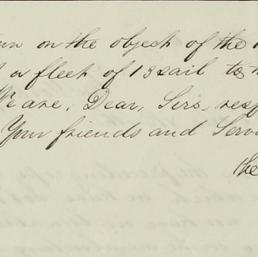 on the object of the
a fleet of 13 sail to
We are, Dear, Sirs,
Your friends and
the